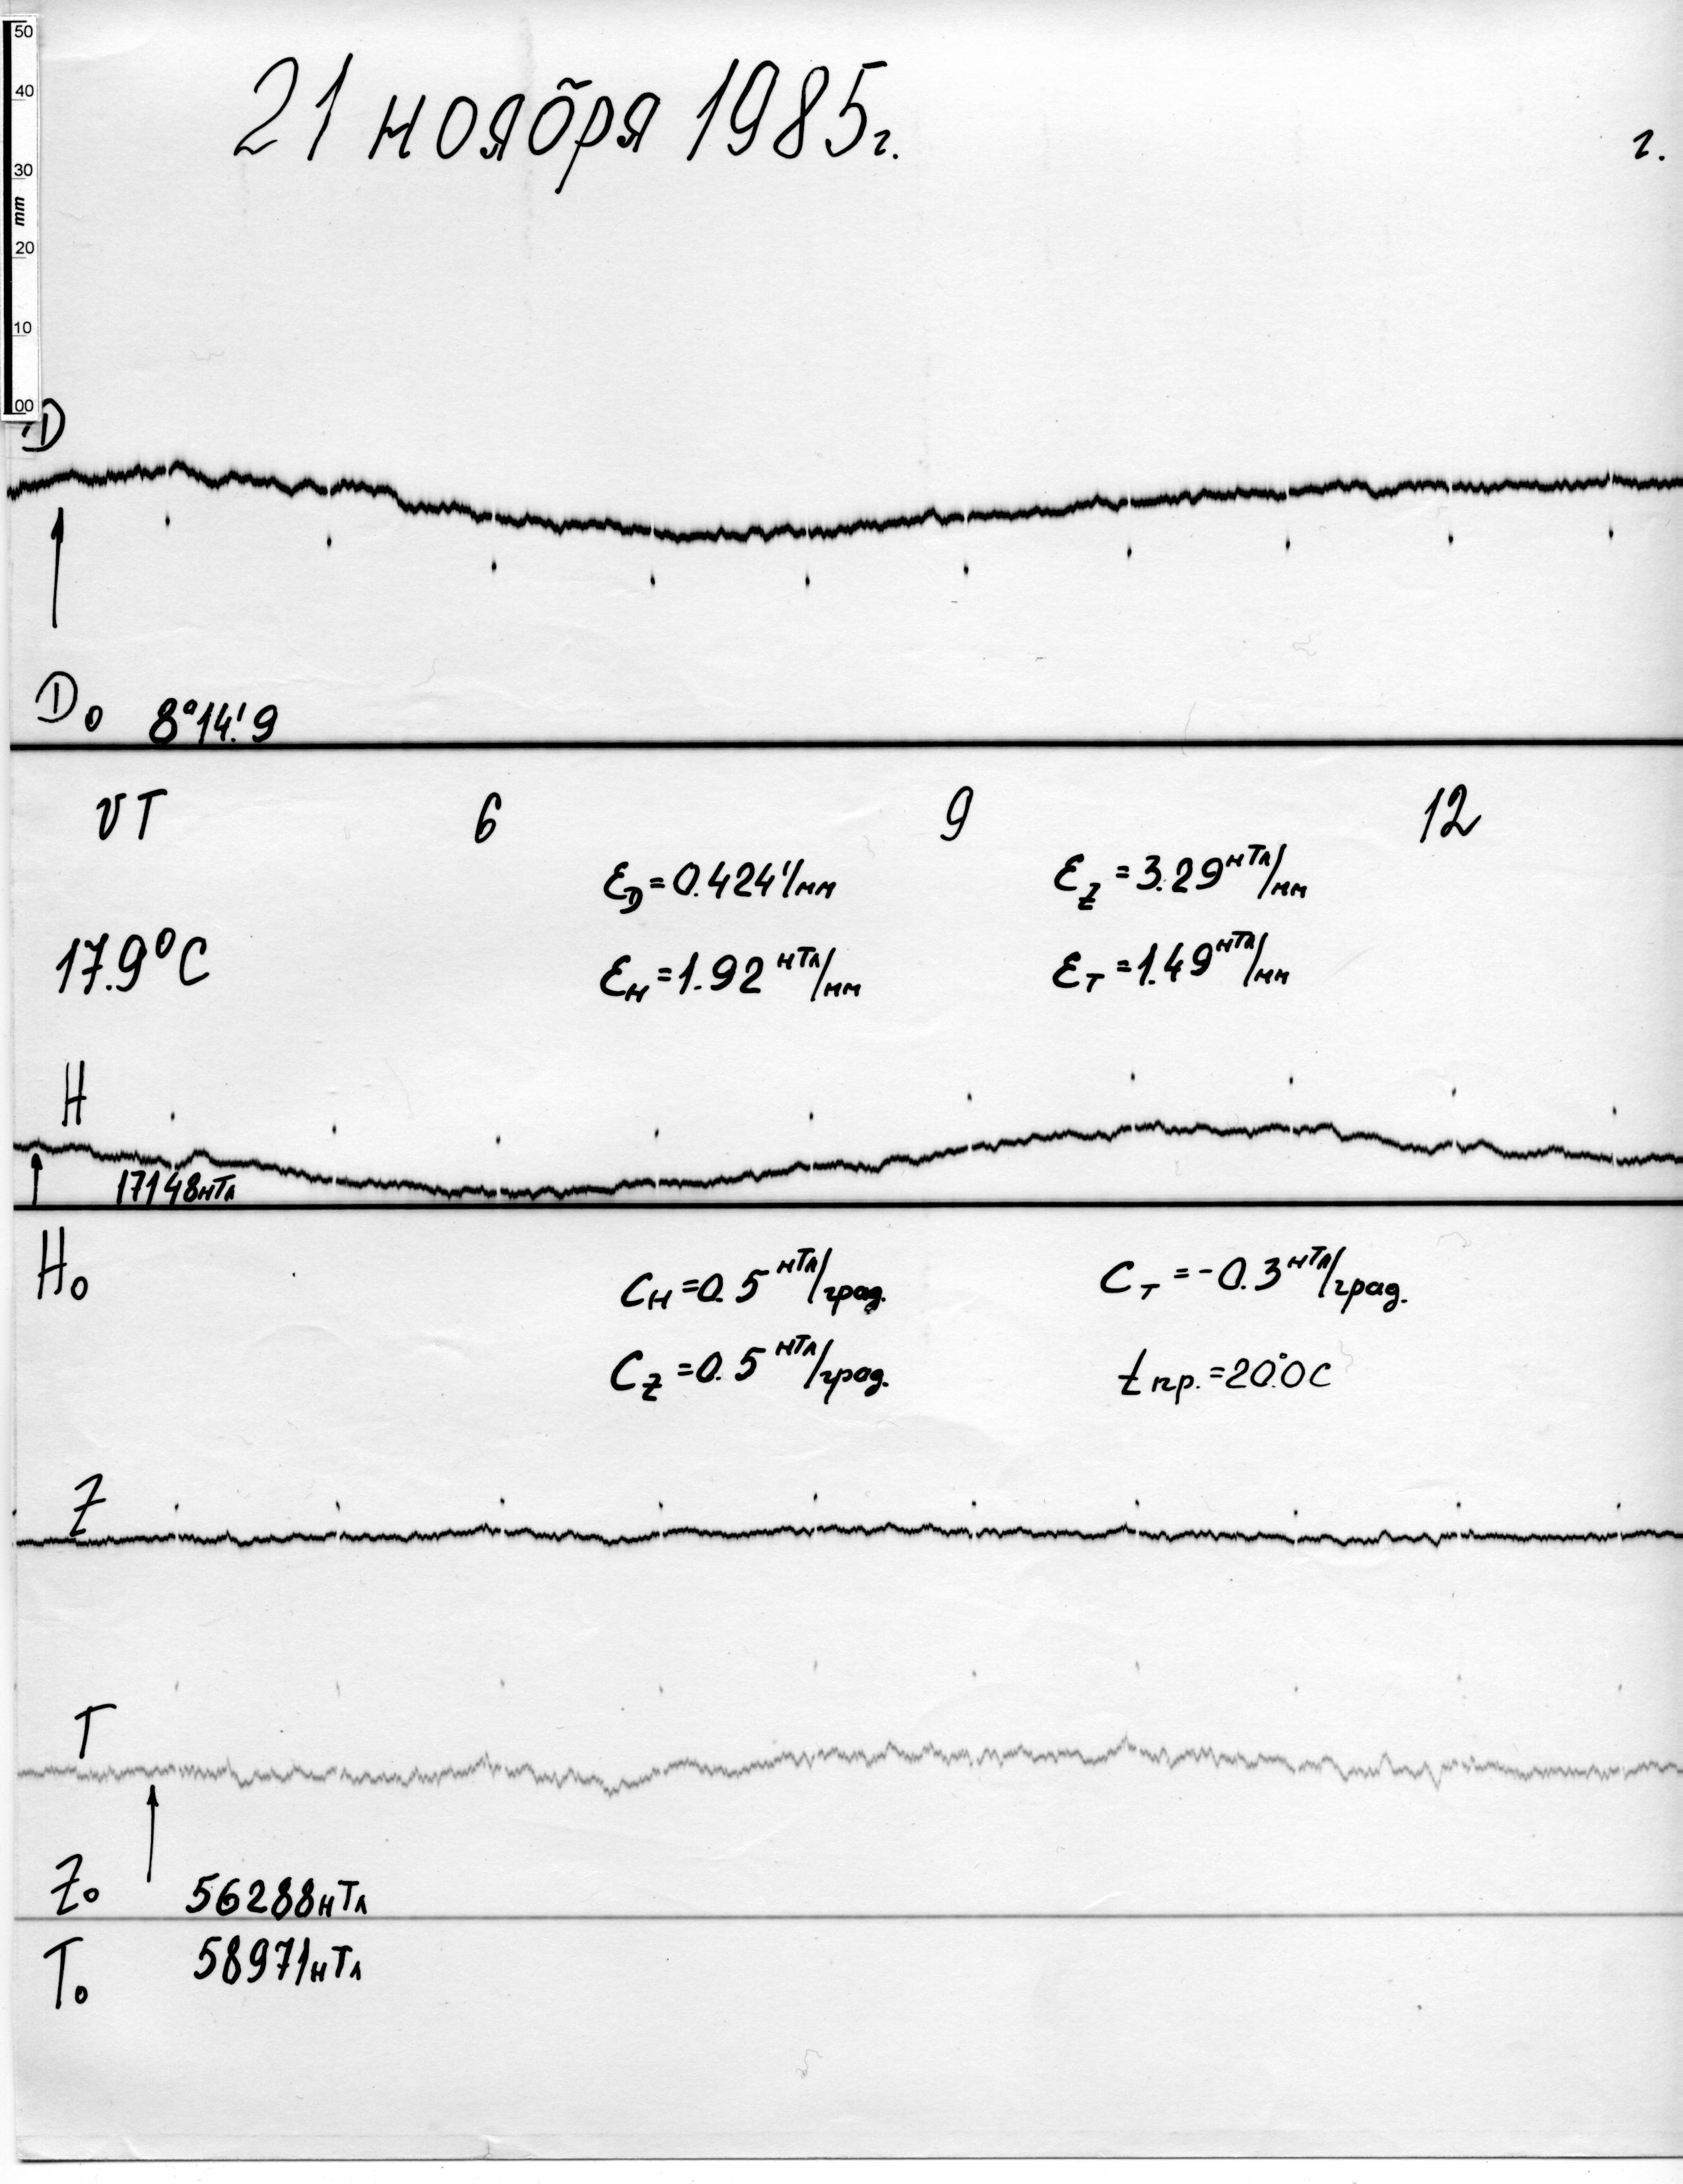 50
40
30
mm
20
10
00
21 ноября 1985г.
г.
D
D₀ 8°14!9
UT 6 9 12
ℰD=0.424'/мм ℰZ=3.29нТл/мм
17.9°C ℰH=1.92нТл/мм ℰT=1.49нТл/мм
H
17148нТл
H₀
CH=0.5нТл/град. CT=-0.3нТл/град.
CZ=0.5нТл/град. tпр.=20°.0C
Z
T
Z₀ 56288нТл
T₀ 58971нТл